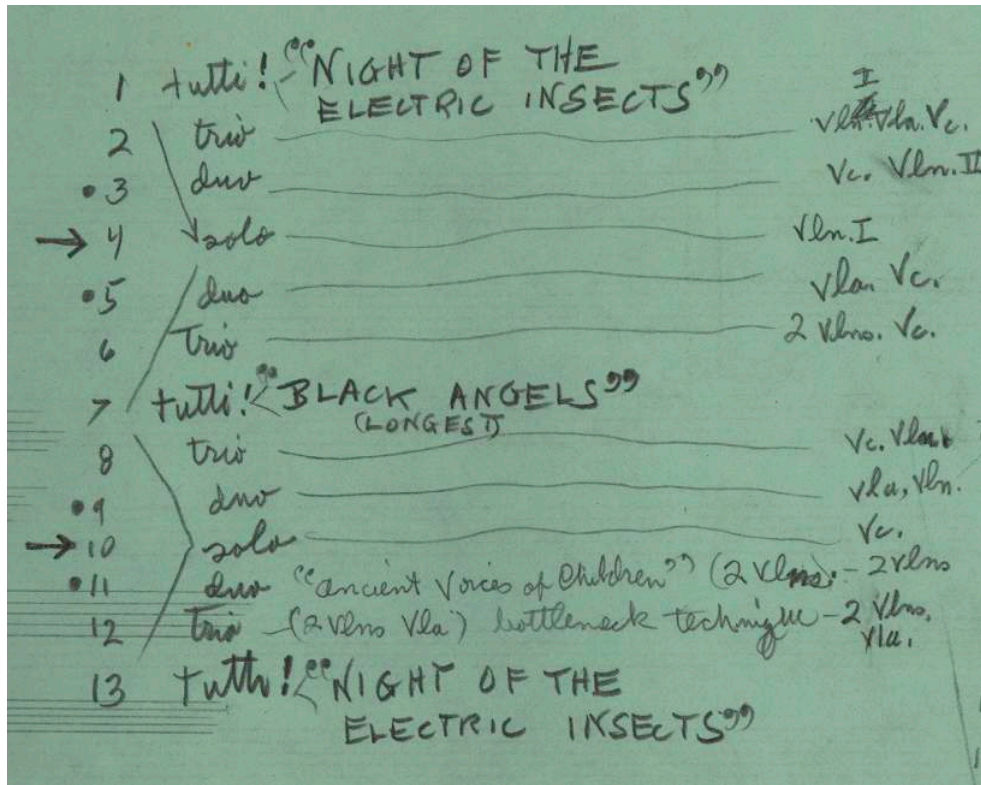 1 tutti! "NIGHT OF THE
ELECTRIC INSECTS"
2 trio I vln. vla. Vc.
• 3 duo Vc. Vln. II
→ 4 solo Vln. I
• 5 duo Vla. Vc.
6 Trio 2 Vlns. Vc.
7 tutti! "BLACK ANGELS"
(LONGEST)
8 trio Vc. Vln.
• 9 duo vla, vln.
→ 10 solo Vc.
• 11 duo "ancient Voices of Children" (2 Vlns). - 2 vlns
12 trio - (2 vlns Vla) bottleneck technique - 2 Vlns.
vla.
13 tutti! "NIGHT OF THE
ELECTRIC INSECTS"